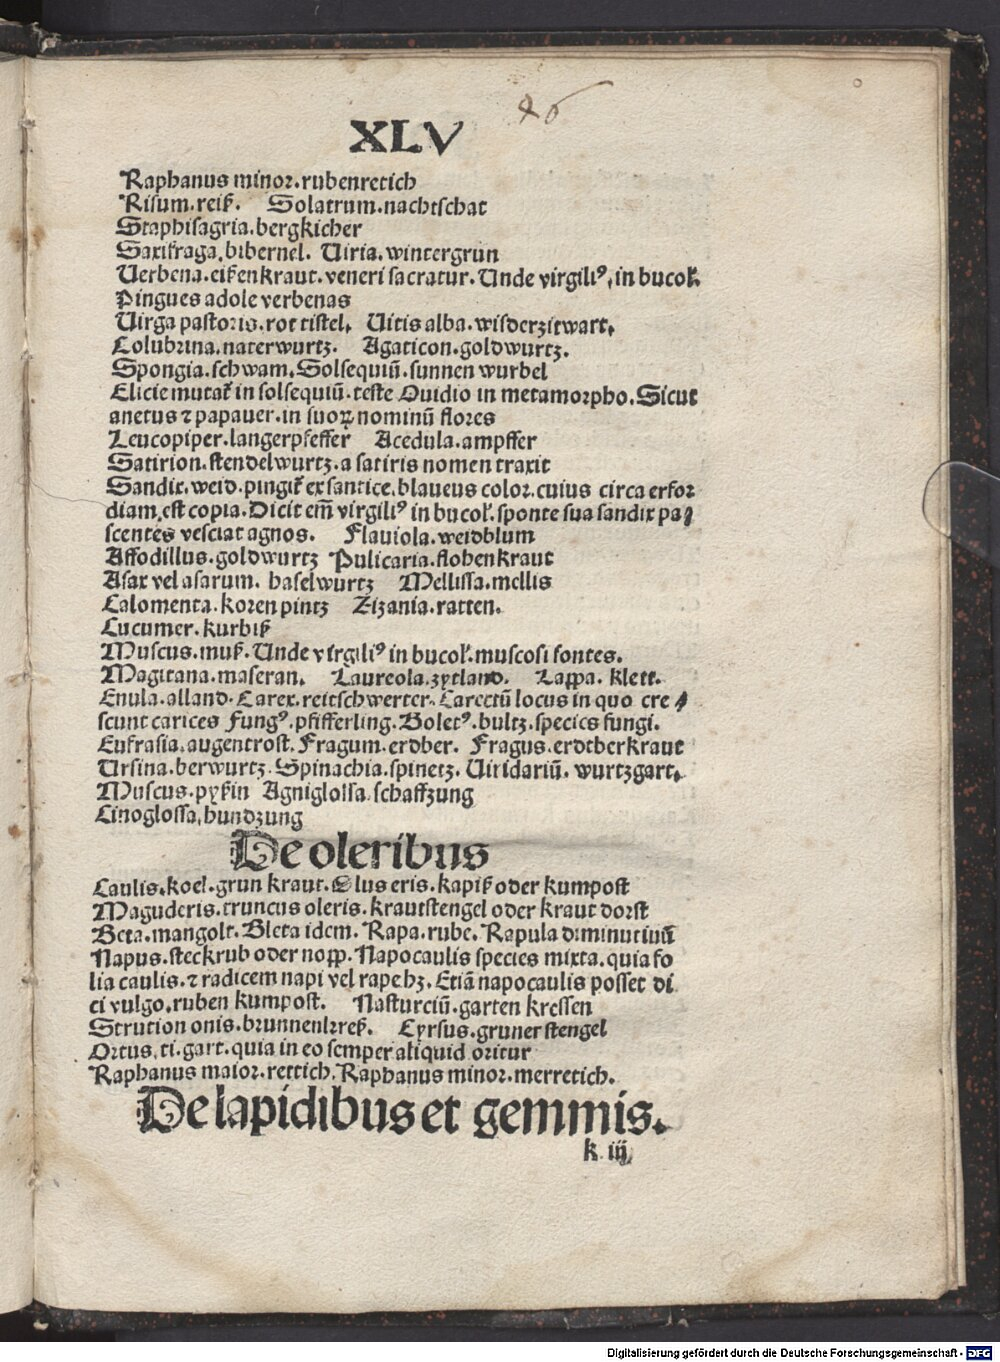 XLV
Raphanus minor.rubenretich
Risum.reiß. Solatrum.nachtschat
Staphisagria.bergkicher
Saxifraga.bibernel. Uiria.wintergrun
Uerbena.eißenkraut.veneri sacratur.Unde virgiliꝰ,in bucoł.
Pingues adole verbenas
Uirga pastoris.rot tistel. Uitis alba.wisderzitwart.
Colubrina.naterwurtz. Agaticon.goldwurtz.
Spongia.schwam.Solsequiū.sunnen wurbel
Elicie mutat᷑ in solsequiū.teste Ouidio in metamorpho.Sicut
anetus ⁊ papauer.in suoꝝ nominū flores
Leucopiper.langerpfeffer Acedula.ampffer
Satirion.stendelwurtz.a satiris nomen traxit
Sandix.weid.pingit᷑ ex santice.blaueus color.cuius circa erfor
diam.est copia.Dicit em̄ virgiliꝰ in bucoł.sponte sua sandix pa⸗
scentes vesciat agnos. Flauiola.weidblum
Affodillus.goldwurtz Pulicaria.flohenkraut
Asax vel asarum. haselwurtz Mellissa.mellis
Calomenta.korenpintz Zizania.ratten.
Cucumer.kurbiß
Muscus.muß.Unde virgiliꝰ in bucoł.muscosi fontes.
Magitana.maseran. Laureola.zytland. Lappa.klett.
Enula.alland.Carex.reitschwerter.Carectū locus in quo cre⸗
scunt carices Fungꝰ.pfifferling.Boletꝰ.bultz.species fungi.
Eufrasia.augentrost.Fragum.erdber. Fragus.erdtberkraut
Ursina.berwurtz.Spinachia.spinetz.Uiridariū.wurtzgart.
Muscus.pyßin Agniglossa.schaffzung
Cinoglossa.hundzung
De oleribus
Caulis.koel.grun kraut.Olus eris.kapiß oder kumpost
Maguderis.truncus oleris.krautstengel oder kraut dorst
Beta.mangolt.Bleta idem.Rapa.rube.Rapula diminutiuū
Napus.steckrub oder nopp.Napocaulis species mixta.quia fo
lia caulis.⁊ radicem napi vel rape hꝫ.Etiā napocaulis posset di
ci vulgo.ruben kumpost. Nasturciū.garten kressen
Strution onis.brunnenkreß. Cyrsus.gruner stengel
Ortus.ti.gart.quia in eo semper aliquid oritur
Raphanus maior.rettich.Raphanus minor.merretich.
De lapidibus et gemmis.
k iij
Digitalisierung gefördert durch die Deutsche Forschungsgemeinschaft - DFG